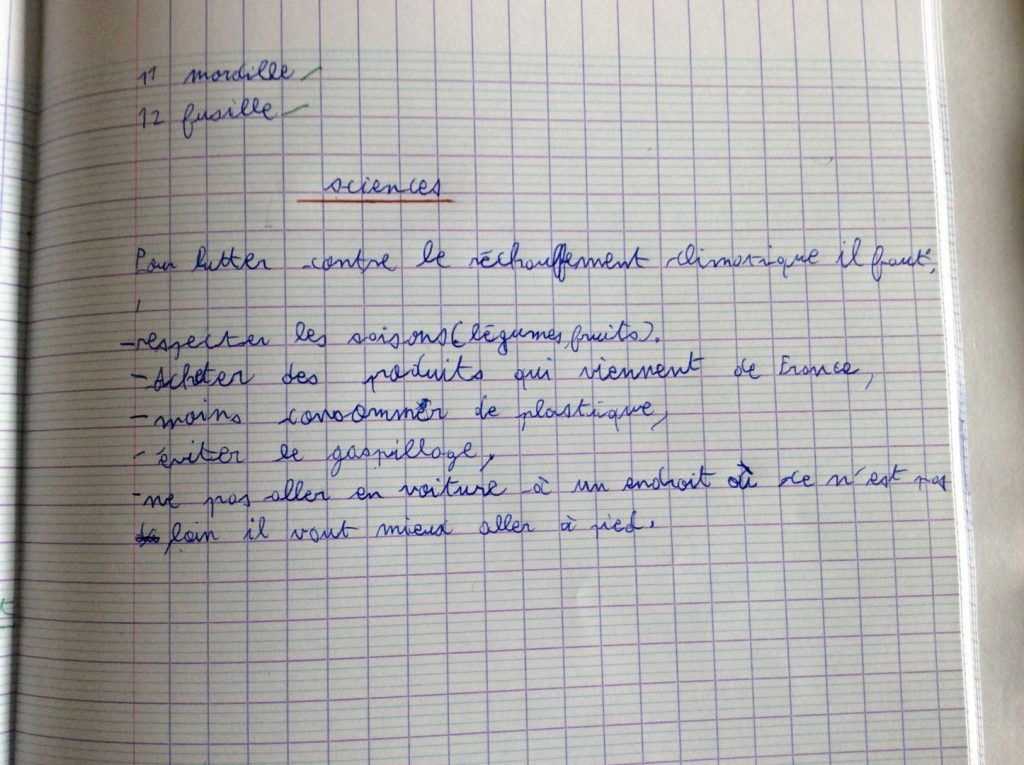 11 mordille
12 fusille
sciences
Pour lutter contre le réchouffement climatique il faut:
-respecter les saisons (légumes, fruits).
- acheter des produits qui viennent de France,
- moins consommer de plastique,
- éviter le gaspillage,
-ne pas aller en voiture à un endroit où ce n'est pas
loin il vaut mieux aller à pied.